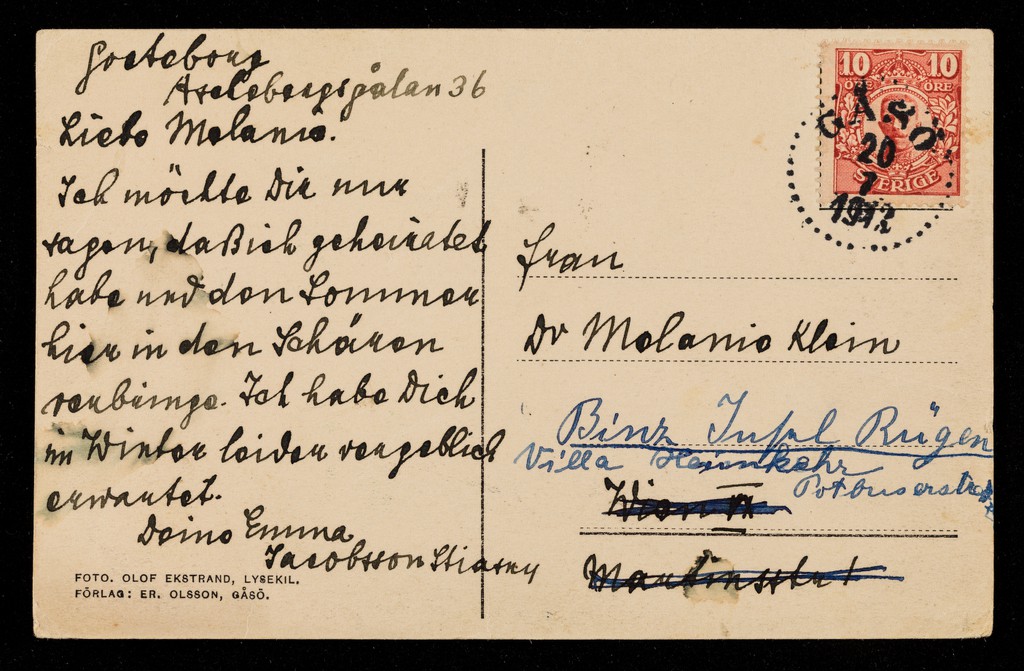 Goeteborg
Aschebergsgatan 36
Liebe Melanie.
Ich möchte Dir nur
sagen, daß ich geheiratet
habe und den Sommer
hier in den Schären
verbringe. Ich habe Dich
im Winter leider vergeblich
erwartet.
Deine Emma
Jacobsson Stiasny
FOTO. OLOF EKSTRAND, LYSEKIL.
FÖRLAG: ER. OLSSON, GÅSÖ.
10 10
ÖRE ÖRE
SVERIGE
GÅSÖ
20
7
1912
Frau
Dr Melanie Klein
Binz Insel Rügen
Villa Heimkehr
Potbuserstr
Wien VI